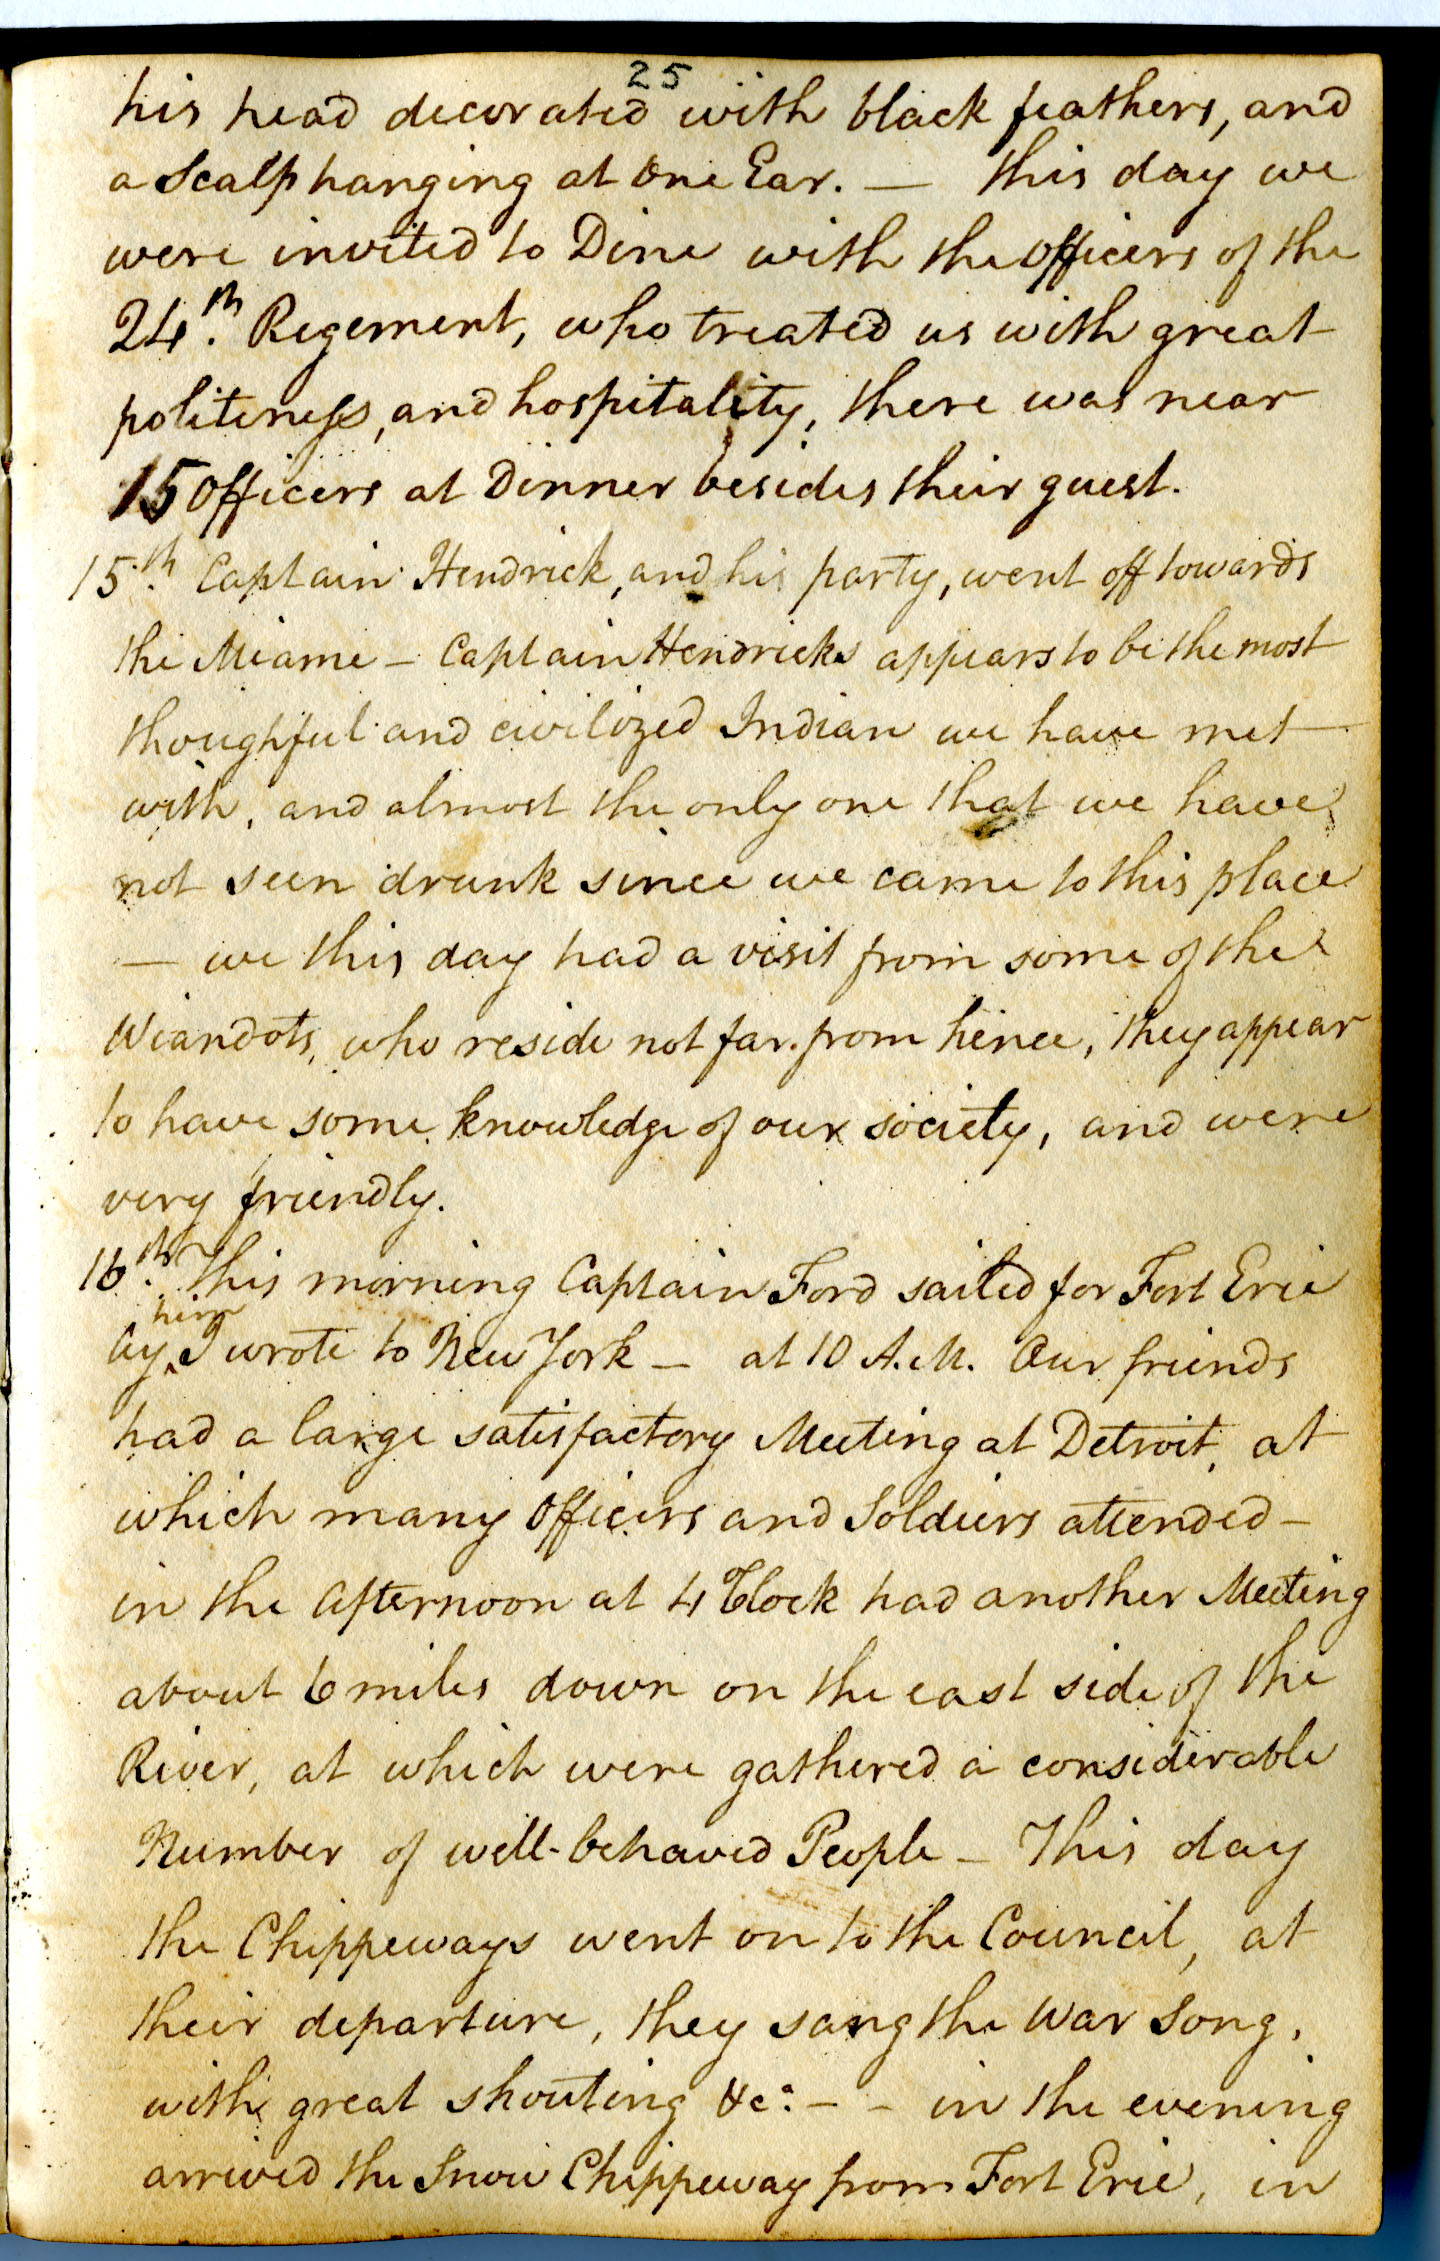 25
his head decorated with black feathers, and
a Scalp hanging at One Ear. — this day we
were invited to Dine with the Officers of the
24th. Regement, who treated us with great
politeness, and hospitality, there was near
15 Officers at Dinner besides their guest.
15th. Captain Hendrick, and his party, went off towards
the Miame – Captain Hendricks appears to be the most
thoughtful and civilized Indian we have met
with, and almost the only one that we have
not seen drunk since we came to this place
— we this day had a visit from some of the
Wiandots, who reside not far from hence, they appear
to have some knowledge of our society, and were
very friendly.
16th. This morning Captain Ford sailed for Fort Erie
him
by ^ I wrote to New York – at 10 A.M. Our friends
had a large satisfactory Meeting at Detroit, at
which many Officers and Soldiers attended –
in the afternoon at 4 Clock had another Meeting
about 6 miles down on the east side of the
River, at which were gathered a considerable
Number of well-behaved People – This day
the Chippeways went on to the Council, at
their departure, they sang the War Song,
with great shouting &c: – – in the evening
arrived the Snow Chippeway from Fort Erie, in